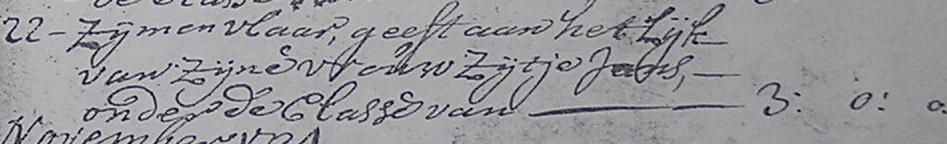 de Classe
22 - Zijmen Vlaar, geeft aan het Lijk
van Zijne Vrouw Zijtje Jans, —
onder de Classe van —— 3: 0: 0.
November van